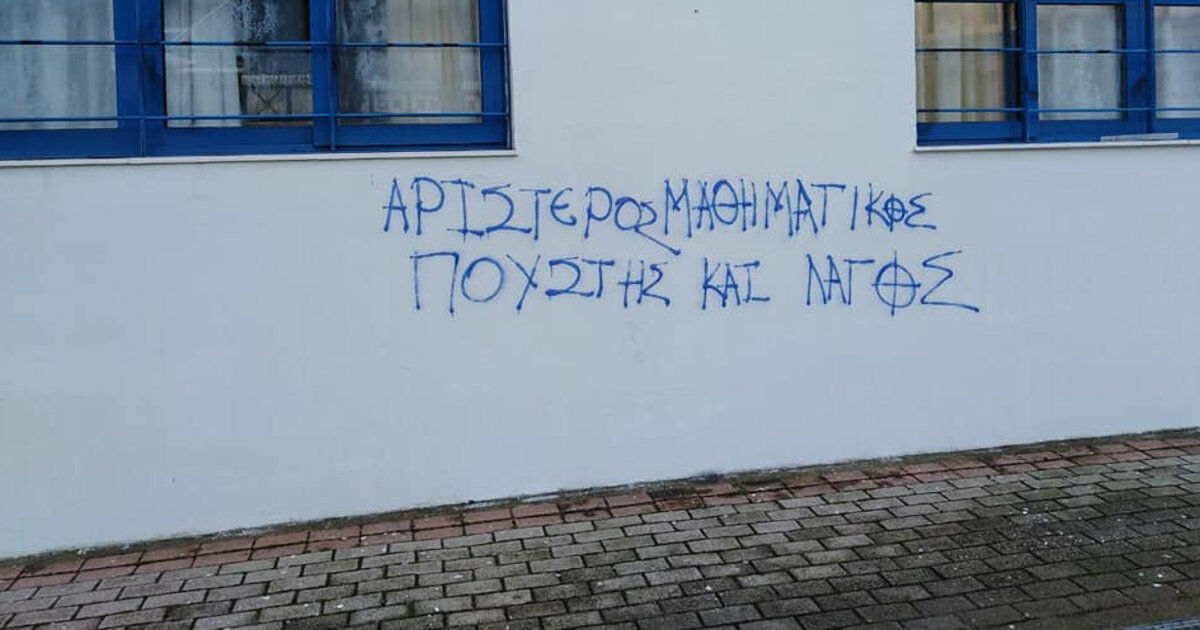 ΑΡΙΣΤΕΡΟς ΜΑΘΗΜΑΤΙΚΟΣ
ΠΟΥΣΤΗΣ ΚΑΙ ΛΑΓΟΣ